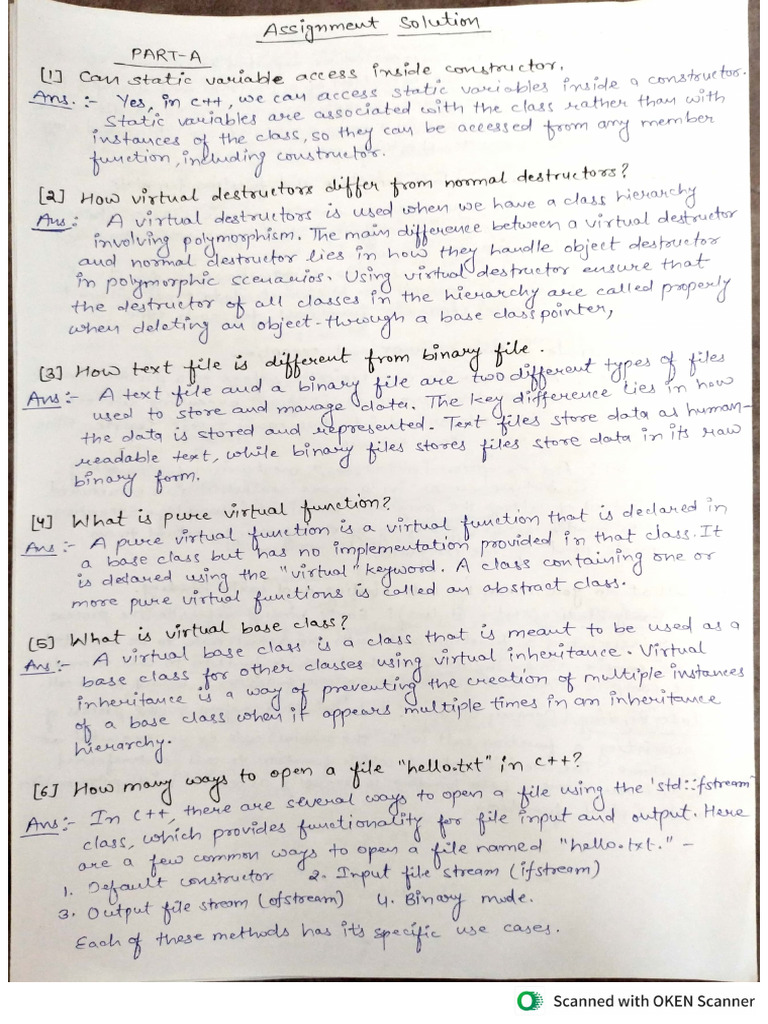 Assignment Solution
PART-A
[1] Can static variable access inside constructor.
Ans. :- Yes, in c++, we can access static variables inside a constructor.
Static variables are associated with the class rather than with
instances of the class, so they can be accessed from any member
function, including constructor.
[2] How virtual destructors differ from normal destructors?
Ans :- A virtual destructors is used when we have a class hierarchy
involving polymorphism. The main difference between a virtual destructor
and normal destructor lies in how they handle object destructor
in polymorphic scenarios. Using virtual destructor ensure that
the destructor of all classes in the hierarchy are called properly
when deleting an object-through a base class pointer,
[3] How text file is different from binary file.
Ans :- A text file and a binary file are two different types of files
used to store and manage data. The key difference lies in how
the data is stored and represented. Text files store data as human-
readable text, while binary files stores files store data in its raw
binary form.
[4] What is pure virtual function?
Ans :- A pure virtual function is a virtual function that is declared in
a base class but has no implementation provided in that class. It
is declared using the "virtual" keyword. A class containing one or
more pure virtual functions is called an abstract class.
[5] What is virtual base class?
Ans :- A virtual base class is a class that is meant to be used as a
base class for other classes using virtual inheritance. Virtual
inheritance is a way of preventing the creation of multiple instances
of a base class when it appears multiple times in an inheritance
hierarchy.
[6] How many ways to open a file "hello.txt" in c++?
Ans :- In C++, there are several ways to open a file using the 'std::fstream'
class, which provides functionality for file input and output. Here
are a few common ways to open a file named "hello.txt." -
1. Default constructor 2. Input file stream (ifstream)
3. Output file stream (ofstream) 4. Binary mode.
Each of these methods has it's specific use cases.
Scanned with OKEN Scanner